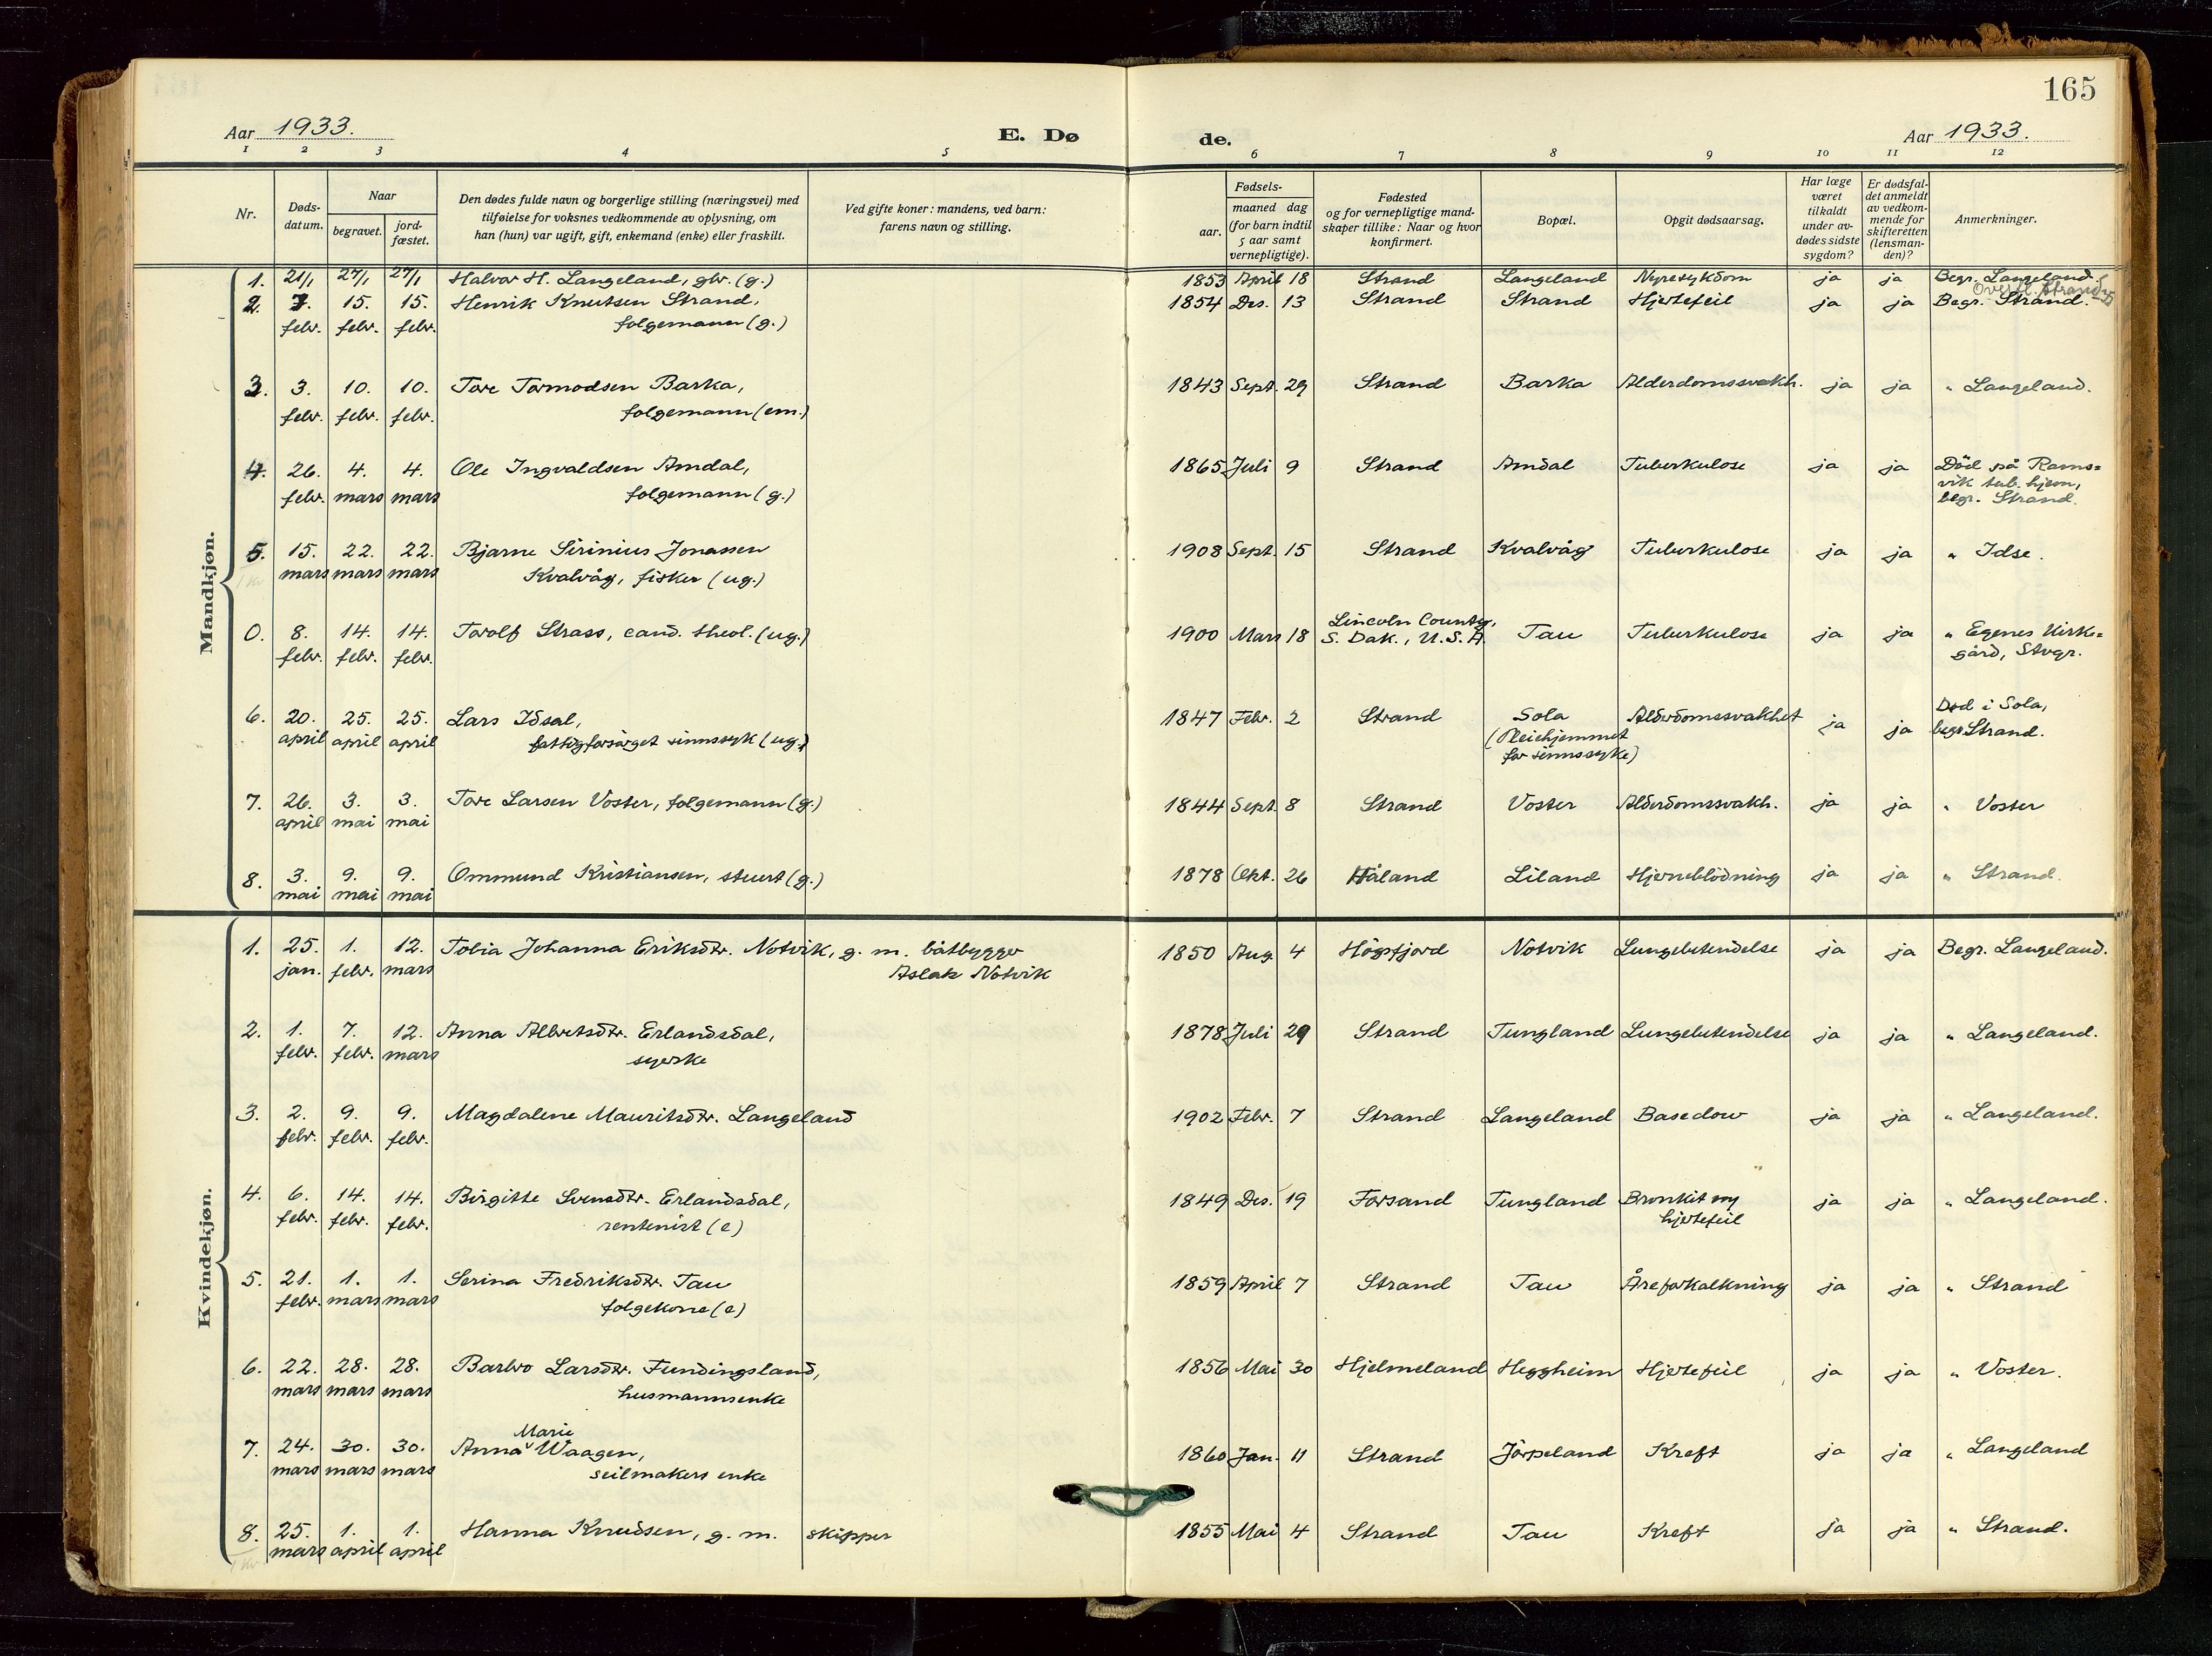 165
Aar 1933.
E. Dø
de.
Aar 1933.
1 2 3 4 5 6 7 8 9 10 11 12
Nr.
Døds-
datum.
Naar
begravet.
jord-
fæstet.
Den dødes fulde navn og borgerlige stilling (næringsvei) med
tilføielse for voksnes vedkommende av oplysning, om
han (hun) var ugift, gift, enkemand (enke) eller fraskilt.
Ved gifte koner: mandens, ved barn:
farens navn og stilling.
Fødsels-
aar.
maaned dag
(for barn indtil
5 aar samt
vernepligtige).
Fødested
og for vernepligtige mand-
skaper tillike: Naar og hvor
konfirmert.
Bopæl.
Opgit dødsaarsag.
Har læge
været
tilkaldt
under av-
dødes sidste
sygdom?
Er dødsfal-
det anmeldt
av vedkom-
mende for
skifteretten
(lensman-
den)?
Anmerkninger.
Mandkjøn.
1. 21/1 27/1 27/1 Halvor H. Langeland, gbr. (g.) 1853 April 18 Strand Langeland Nyresykdom ja ja Begr. Langeland.
2. 7. 15. 15. Henrik Knutsen Strand, 1854 Des. 13 Strand Strand Hjertefeil ja ja Begr. Strand.
febr. febr. febr. folgemann (g.)
3. 3. 10. 10. Tore Tormodsen Barka, 1843 Sept. 29 Strand Barka Alderdomssvakh. ja ja " Langeland.
febr. febr. febr. folgemann (em.)
4. 26. 4. 4. Ole Ingvaldsen Amdal, 1865 Juli 9 Strand Amdal Tuberkulose ja ja Död på Rams=
febr. mars mars folgemann (g.) vik tub. hjem,
begr. Strand.
5. 15. 22. 22. Bjarne Sirinius Jonassen 1908 Sept. 15 Strand Kvalvåg Tuberkulose ja ja " Idse.
mars mars mars Kvalvåg, fisker (ug.)
0. 8. 14. 14. Torolf Strass, cand. theol. (ug.) 1900 Mars 18 Lincoln County, S. Dak., U.S.A. Tau Tuberkulose ja ja " Egenes Kirke=
febr. febr. febr. gård, Stvgr.
6. 20. 25. 25. Lars Idsal, 1847 Febr. 2 Strand Sola Alderdomssvakhet ja ja Död i Sola,
april april april fattigforsörget sinnssyk (ug.) (Pleiehjemmet begr. Strand.
for sinnssyke)
7. 26. 3. 3. Tore Larsen Voster, folgemann (g.) 1844 Sept. 8 Strand Voster Alderdomssvakh. ja ja " Voster
april mai mai
8. 3. 9. 9. Ommund Kristiansen, stuert (g.) 1878 Okt. 26 Håland Liland Hjerneblödning ja ja " Strand.
mai mai mai
Kvindekjøn.
1. 25. 1. 12. Tobia Johanna Eriksdtr. Notvik, g. m. båtbygger 1850 Aug. 4 Högsfjord Notvik Lungebetendelse ja ja Begr. Langeland.
jan. febr. mars Aslak Notvik
2. 1. 7. 12. Anna Albretsdtr. Erlandsdal, 1878 Juli 29 Strand Tungland Lungebetendelse ja ja " Langeland.
febr. febr. mars syerske
3. 2. 9. 9. Magdalene Mauritsdtr. Langeland 1902 Febr. 7 Strand Langeland Basedow ja ja " Langeland.
febr. febr. febr.
4. 6. 14. 14. Birgitte Svensdtr. Erlandsdal, 1849 Des. 19 Forsand Tungland Bronkit og ja ja " Langeland.
febr. febr. febr. rentenist (e) hjertefeil
5. 21. 1. 1. Serina Fredriksdtr. Tau 1859 April 7 Strand Tau Åreforkalkning ja ja " Strand
febr. mars mars folgekone (e)
6. 22. 28. 28. Barbro Larsdtr. Fundingsland, 1856 Mai 30 Hjelmeland Heggheim Hjertefeil ja ja " Voster.
mars mars mars husmannsenke
Marie
7. 24. 30. 30. Anna Waagen, 1860 Jan. 11 Strand Jörpeland Kreft ja ja " Langeland
mars mars mars seilmakers enke
8. 25. 1. 1. Hanna Knudsen, g. m. skipper 1855 Mai 4 Strand Tau Kreft ja ja " Strand.
mars april april